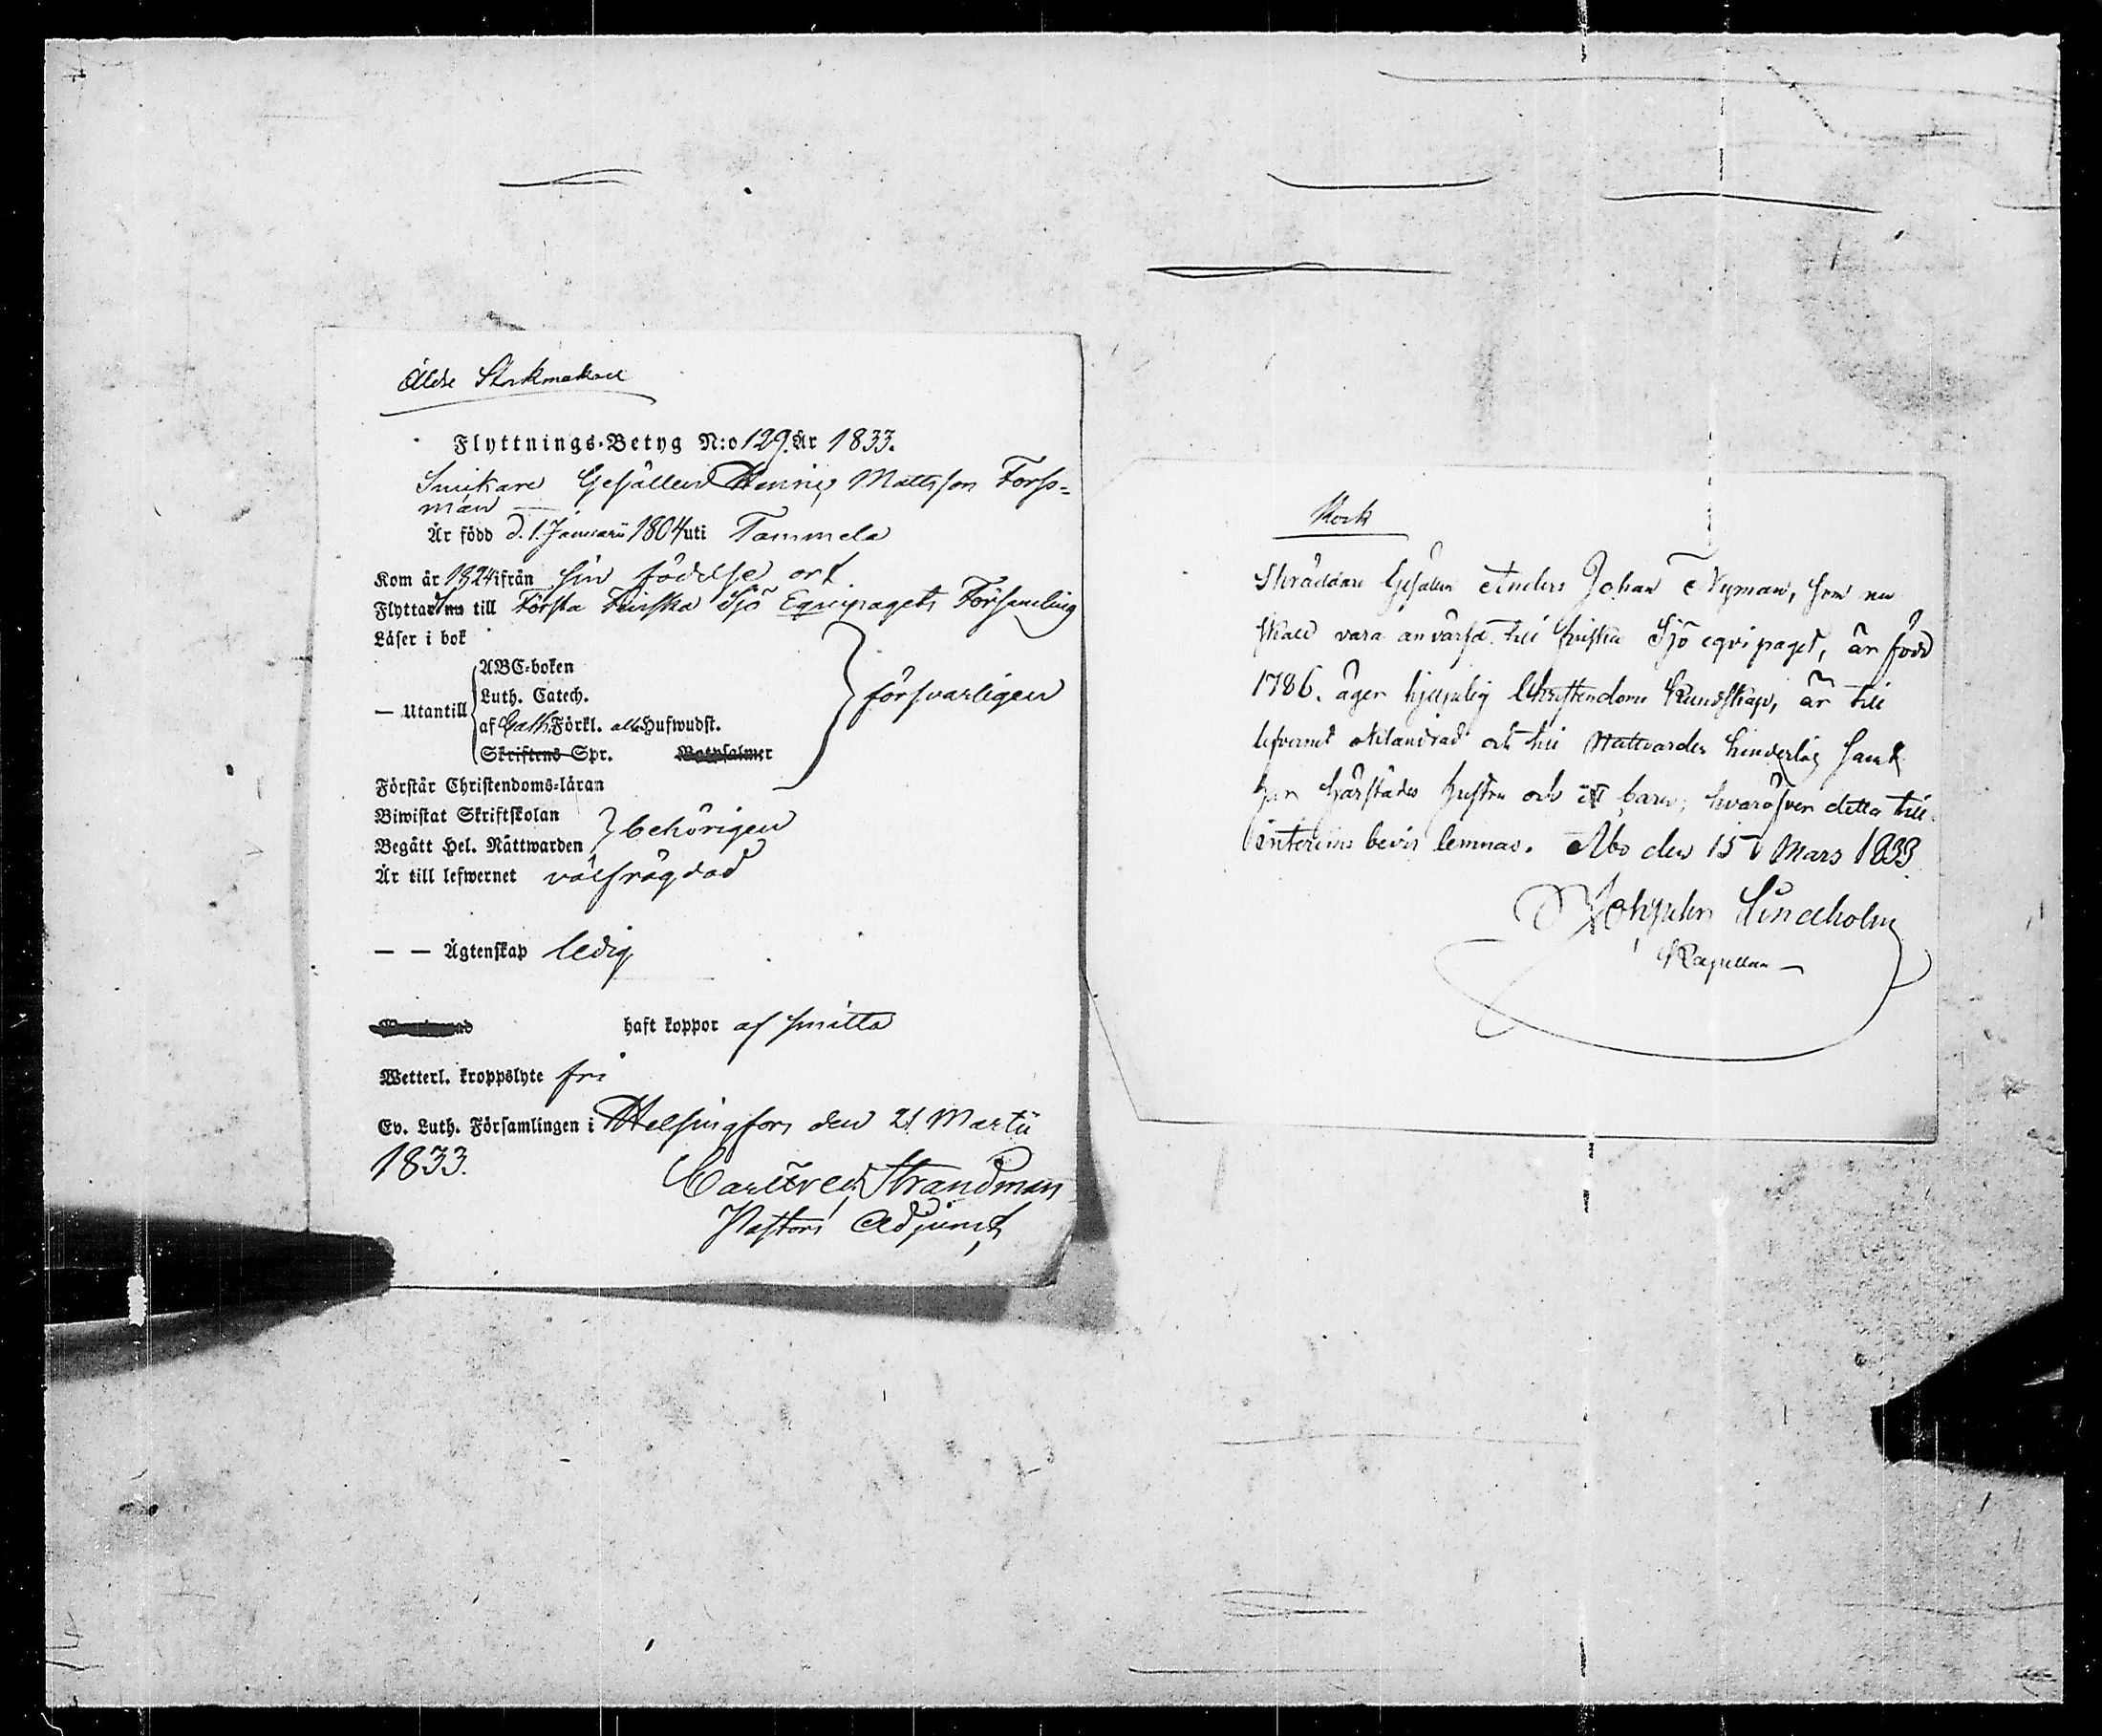 Äldre Stockmakare
Flyttnings-Betyg N:o 129. År 1833.
Snickare Gesällen Henric Mattsson Forss-
man
Är född d. 1. Januarii 1804 uti Tammela
Kom år 1824 ifrån sin födelse ort
Flyttar nu till Första Finska Sjö Equipagets Församling
Läser i bok
ABC-boken
Luth. Catech.
— Utantill försvarligen
af Cath. Förkl. alla Hufwudst.
Skriftens Spr. Botpsalmer
Förstår Christendoms-läran
Biwistat Skriftskolan
behörigen
Begått Hel. Nattwarden
Är till lefwernet välfrägdad
— — Ägtenskap ledig
haft koppor af smitta
Wetterl. kroppslyte fri
Ev. Luth. Församlingen i Helsingfors den 21 Martii
1833.
Carl Fred Strandman
Pastors Adjunct
Kock
Skräddare Gesällen Anders Johan Nyman, som nu
skall vara anvärfd till finska Sjö eqvipaget, är född
1786. äger hjelplig Christendoms kundskap, är till
lefvernet oklandrad och till Nattvarden hinderlös samt
har härstädes hustru och ett barn; hvaröfver detta till
interims bevis lemnas. Åbo den 15 Mars 1833.
Lindholm
Kapellan